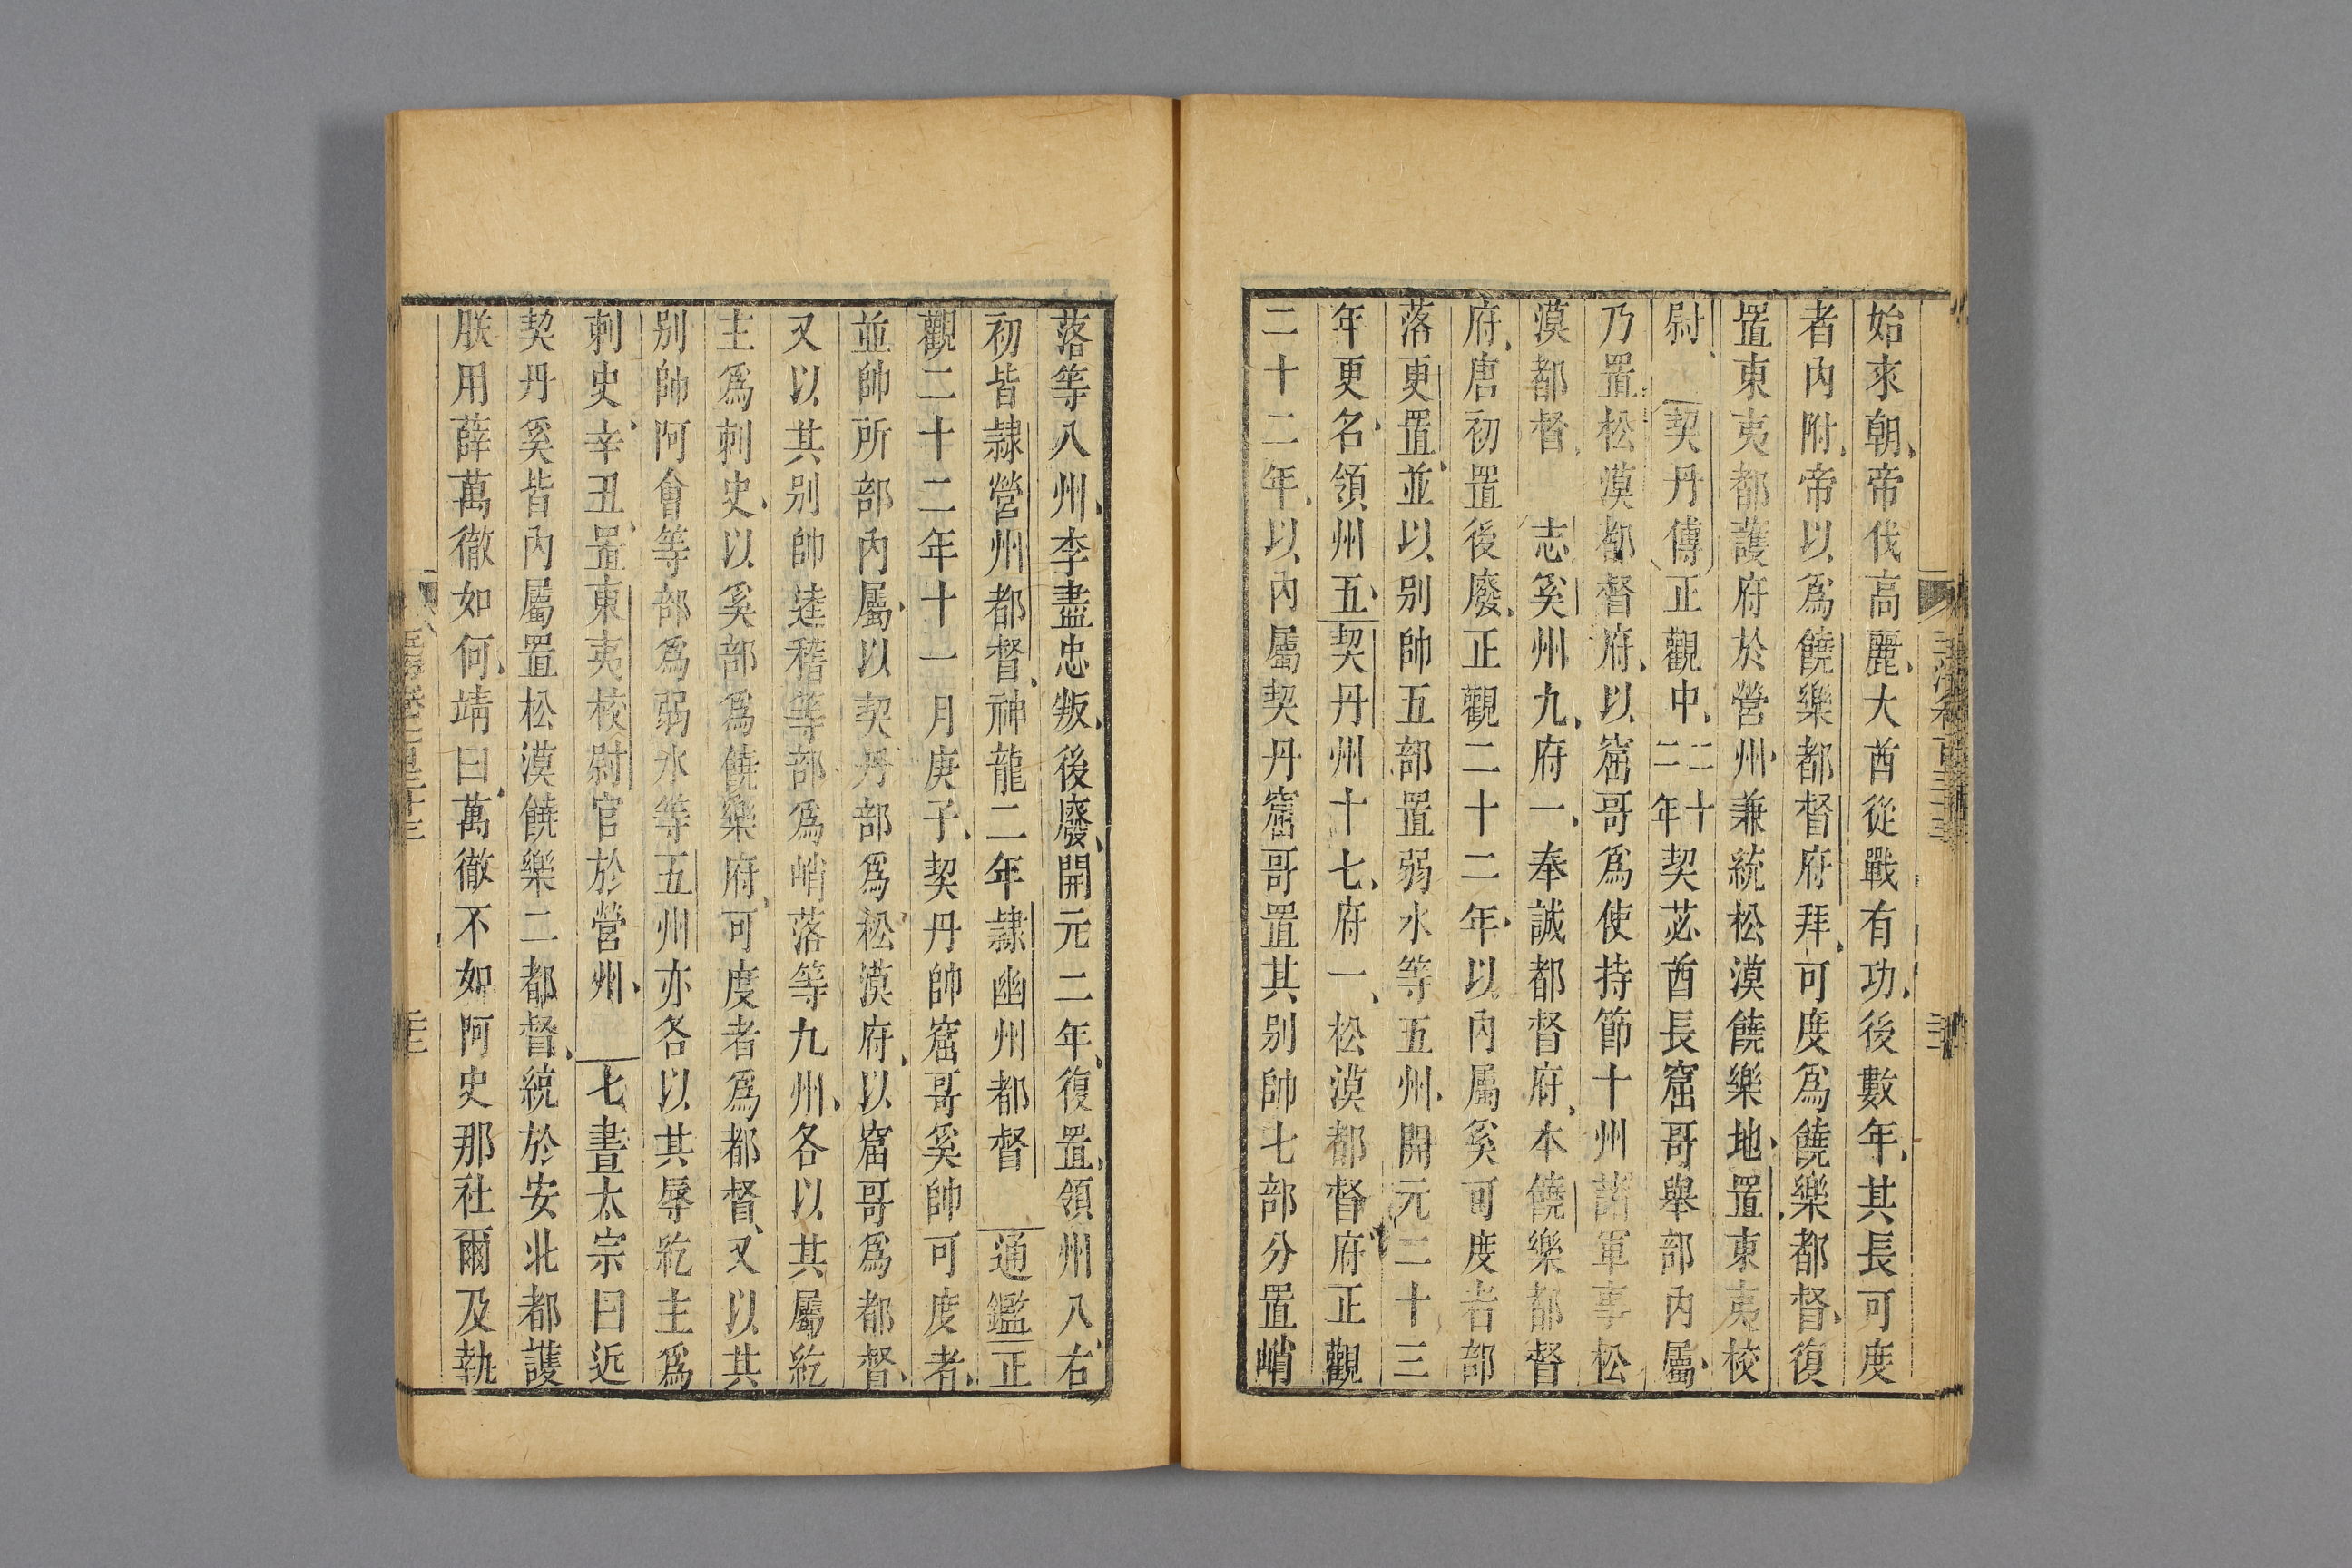 始來朝帝伐高麗大酋從戰有功後數年其長可度
者內附帝以爲饒樂都督府拜可度爲饒樂都督復
置東夷都護府於營州兼統松漠饒樂地置東夷校
尉 契丹傳正觀中二十二年契苾酋長窟哥舉部內屬
乃置松漠都督府以窟哥爲使持節十州諸軍事松
漠都督 志奚州九府一奉誠都督府本饒樂都督
府唐初置後廢正觀二十二年以內屬奚可度者部
落更置並以别帥五部置弱水等五州開元二十三
年更名領州五契丹州十七府一松漠都督府正觀
二十二年以內屬契丹窟哥置其别帥七部分置峭
落等八州李盡忠叛後廢開元二年復置領州八右
初皆隷營州都督神龍二年隷幽州都督 通鑑正
觀二十二年十一月庚子契丹帥窟哥奚帥可度者
並帥所部內屬以契丹部爲松漠府以窟哥爲都督
又以其别帥逹稽等部爲峭落等九州各以其屬紇
主爲刺史以奚部爲饒樂府可度者爲都督又以其
别帥阿會等部爲弱水等五州亦各以其辱紇主爲
刺史辛丑置東夷校尉官於營州 七書太宗曰近
契丹奚皆內屬置松漠饒樂二都督統於安北都護
朕用薛萬徹如何靖曰萬徹不如阿史那社爾及執